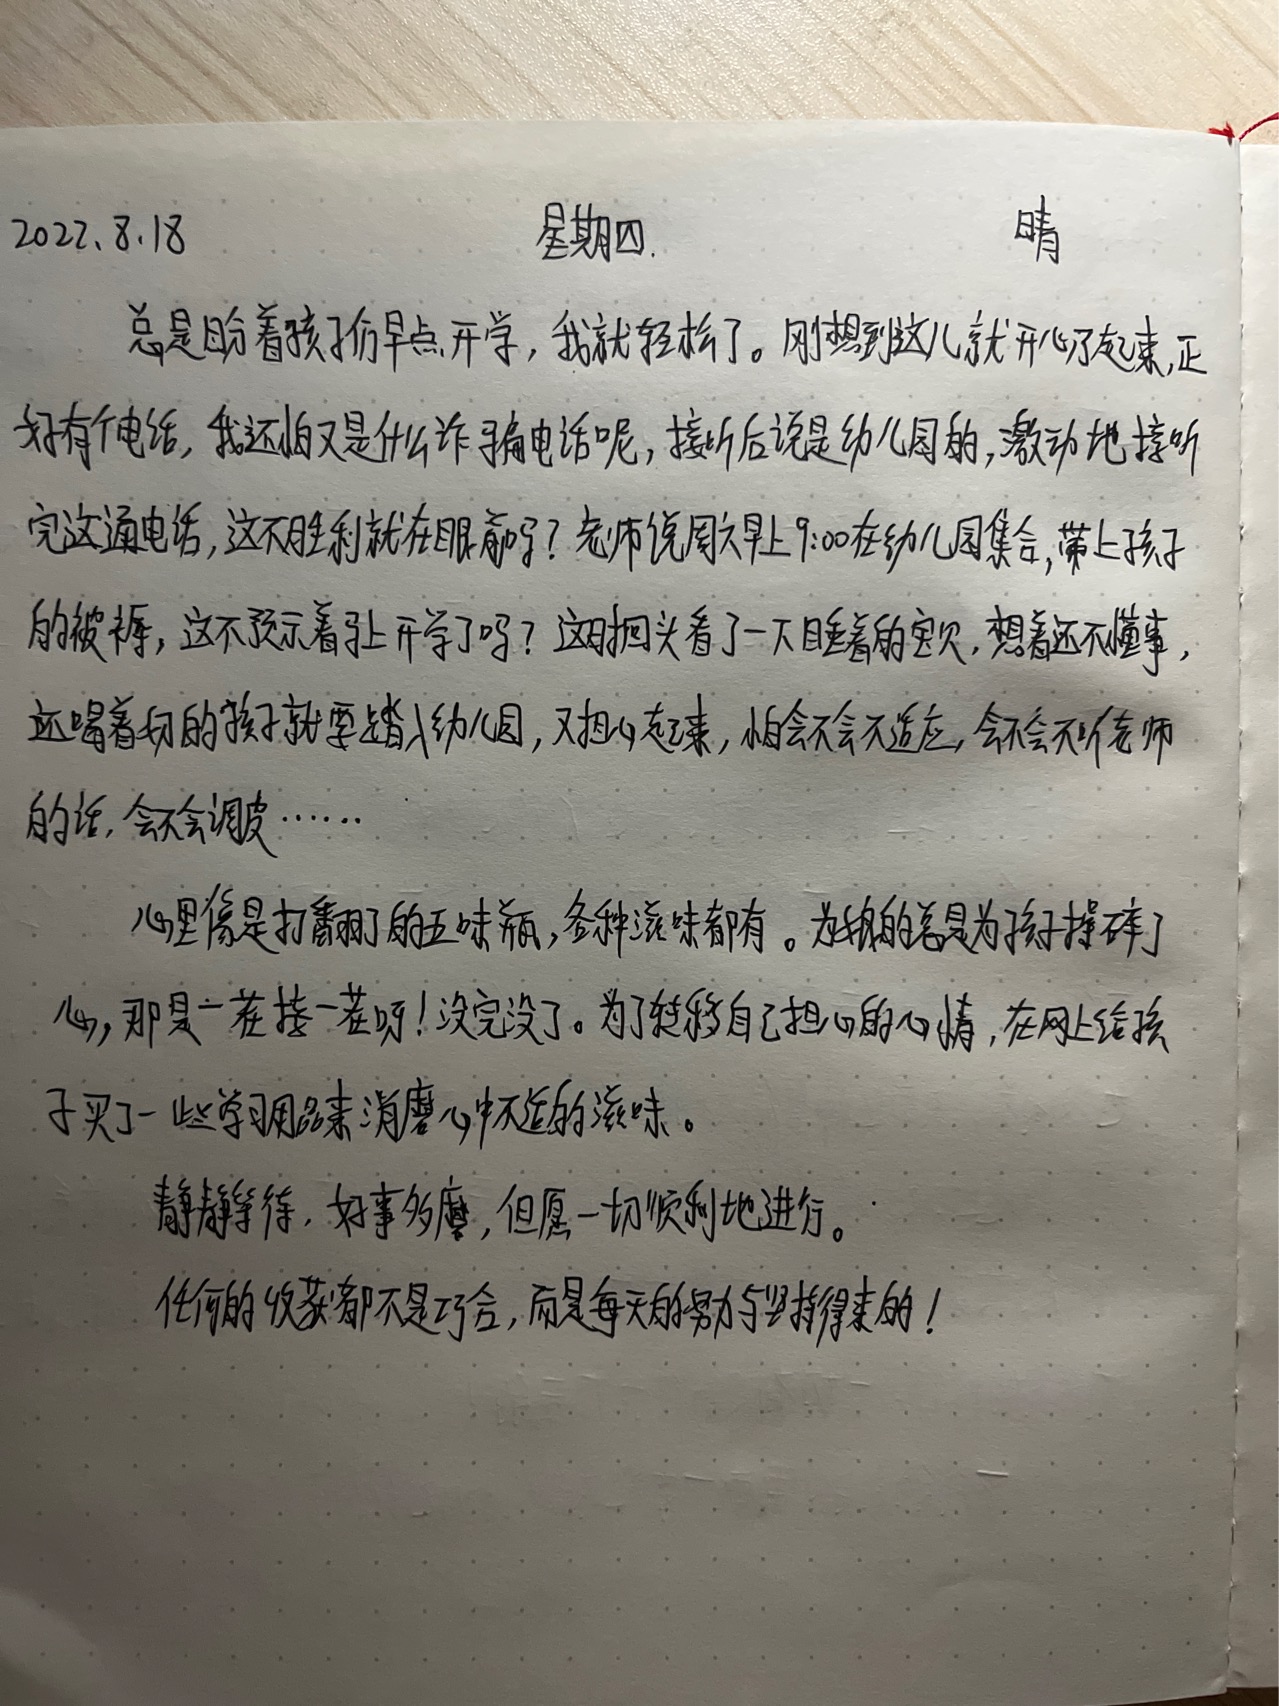 2022.8.18 星期四. 晴
总是盼着孩子们早点开学，我就轻松了。刚想到这儿就开心了起来，正
好有个电话，我还怕又是什么诈骗电话呢，接听后说是幼儿园的，激动地接听
完这通电话，这不胜利就在眼前吗？老师说周六早上9:00在幼儿园集合，带上孩子
的被褥，这不预示着马上开学了吗？这时回头看了一下睡着的宝贝，想着还不懂事，
还喝着奶的孩子就要踏入幼儿园，又担心起来，怕会不会不适应，会不会不听老师
的话，会不会调皮……
心里像是打翻了的五味瓶，各种滋味都有。为娘的总是为孩子操碎了
心，那是一茬接一茬呀！没完没了。为了转移自己担心的心情，在网上给孩
子买了一些学习用品来消磨心中不适的滋味。
静静等待，好事多磨，但愿一切顺利地进行。
任何的收获都不是巧合，而是每天的努力与坚持得来的！